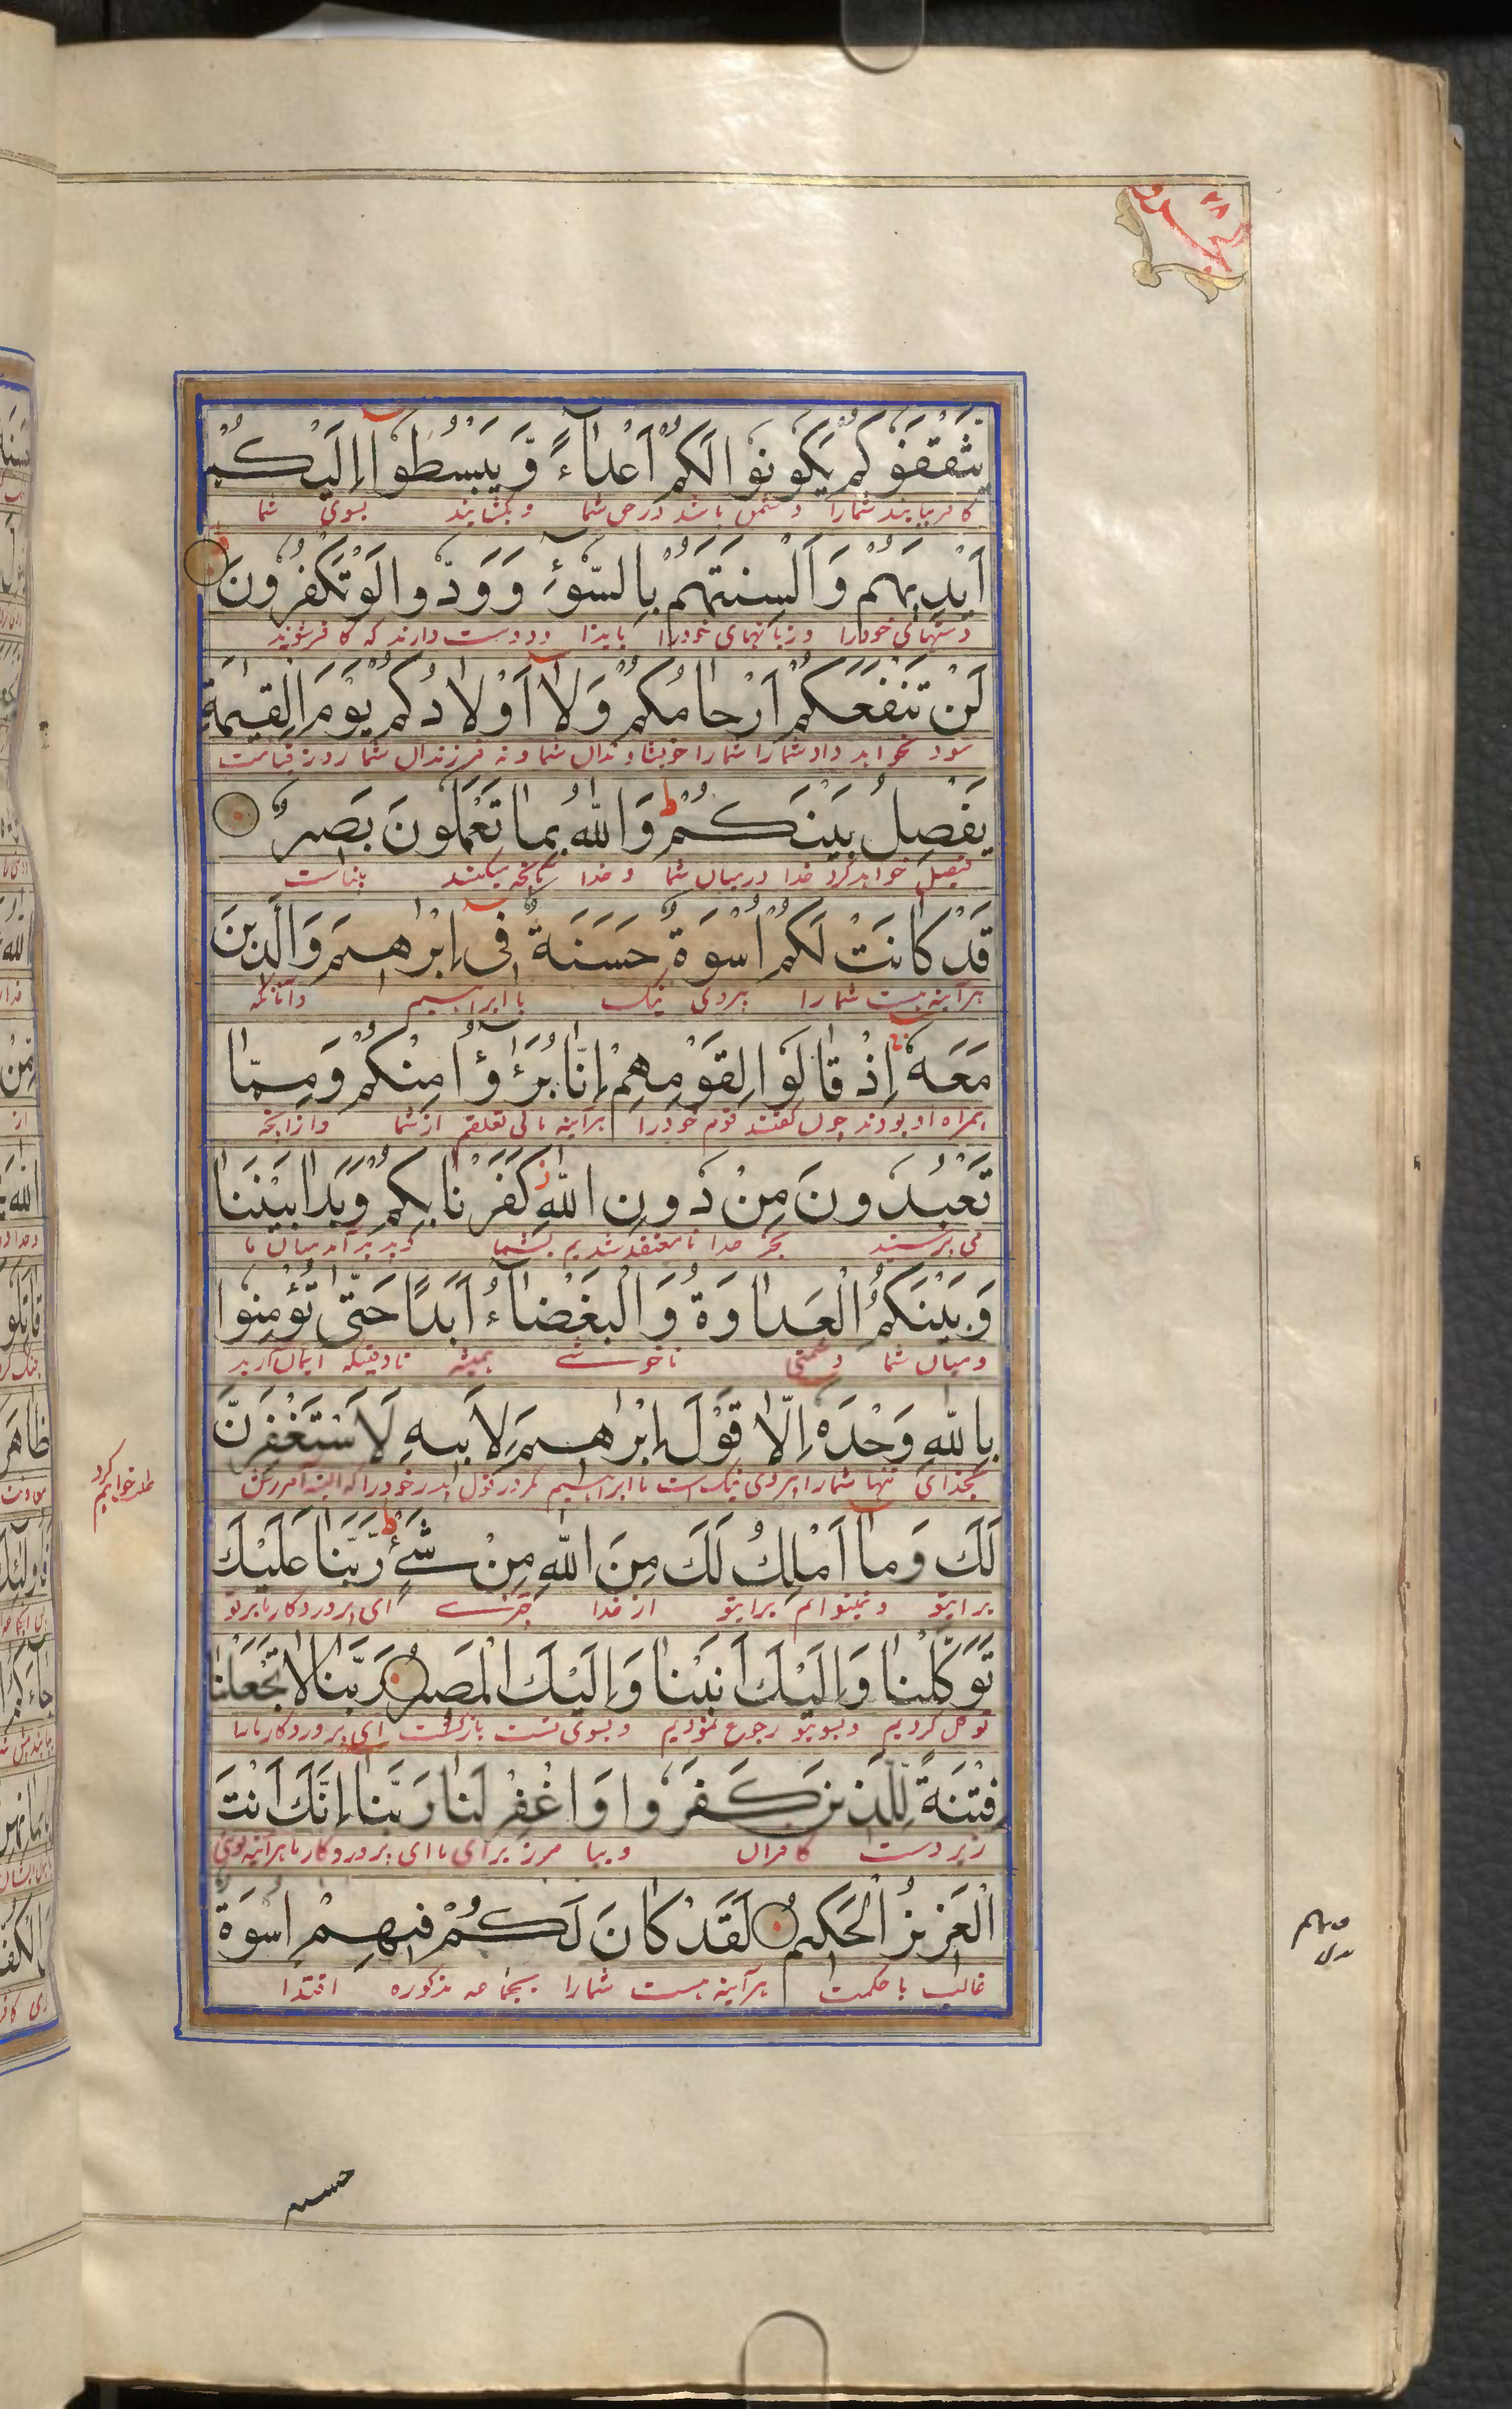 يَثْقَفُوكُمْ يَكُونُوا لَكُمْ أَعْدَآءً وَّيَبْسُطُوا إِلَيْكُمْ
شمارا دشمن باشند در حق شما و بکشایند بسوی شما
أَيْدِيَهُمْ وَأَلْسِنَتَهُمْ بِالسُّوءِ وَوَدُّوا لَوْ تَكْفُرُونَ
دستهای خودرا و زبانهای خودرا بایذا و دوست دارند که کافر شوید
لَنْ تَنْفَعَكُمْ أَرْحَامُكُمْ وَلَا أَوْلَادُكُمْ يَوْمَ الْقِيٰمَةِ
سود نخواهد داد شمارا شمارا خویشاوندان شما و نه فرزندان شما روز قیامت
يَفْصِلُ بَيْنَكُمْ ط وَاللهُ بِمَا تَعْمَلُونَ بَصِيرٌ
فیصل خواهد کرد خدا درمیان شما و خدا بآنچه میکنید بیناست
قَدْ كَانَتْ لَكُمْ أُسْوَةٌ حَسَنَةٌ فِي إِبْرٰهِيمَ وَالَّذِينَ
هرآینه هست شما را پیروی نیک با ابراهیم و آنانکه
مَعَهُ إِذْ قَالُوا لِقَوْمِهِمْ إِنَّا بُرَءٰٓؤُا مِنْكُمْ وَمِمَّا
همراه او بودند چون گفتند قوم خودرا هرآینه ما بی تعلقیم از شما و از آنچه
تَعْبُدُونَ مِنْ دُونِ اللهِ ز كَفَرْنَا بِكُمْ وَبَدَا بَيْنَنَا
می پرستید بجز خدا نامعتقد شدیم بشما و پدید آمد میان ما
وَبَيْنَكُمُ الْعَدَاوَةُ وَالْبَغْضَآءُ أَبَدًا حَتّٰى تُؤْمِنُوا
و میان شما دشمنی ناخوشی همیشه تا وقتیکه ایمان آرید
بِاللهِ وَحْدَهُ إِلَّا قَوْلَ إِبْرٰهِيمَ لِأَبِيهِ لَأَسْتَغْفِرَنَّ
بخدای تنها شمارا پیروی نیک است با ابراهیم مگر در قول پدر خودرا که البته آمرزش
طلب خواهم کرد
لَكَ وَمَا أَمْلِكُ لَكَ مِنَ اللهِ مِنْ شَيْءٍ ط رَّبَّنَا عَلَيْكَ
برایتو و نمیتوانم برایتو از خدا چیزے ای پروردگار ما بر تو
تَوَكَّلْنَا وَإِلَيْكَ أَنَبْنَا وَإِلَيْكَ الْمَصِيرُ رَبَّنَا لَا تَجْعَلْنَا
توکل کردیم و بسویتو رجوع نمودیم و بسوی تست بازگشت ای پروردگار ما مارا
فِتْنَةً لِّلَّذِينَ كَفَرُوا وَاغْفِرْ لَنَا رَبَّنَا إِنَّكَ أَنْتَ
زیردست کافران و بیامرز برای ما ای پروردگار ما هرآینه توئی
الْعَزِيزُ الْحَكِيمُ لَقَدْ كَانَ لَكُمْ فِيهِمْ أُسْوَةٌ
غالب با حکمت هرآینه هست شمارا بجماعه مذکوره اقتدا
حسنه